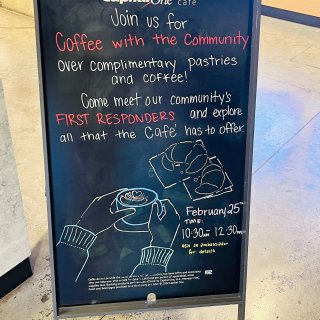 Capital One café
Join us for
Coffee with the Community
over complimentary pastries
and coffee!
Come meet our community's
FIRST RESPONDERS and explore
all that the Café has to offer.
February 25th
TIME:
10:30am 12:30pm
ASK an ambassador
for details